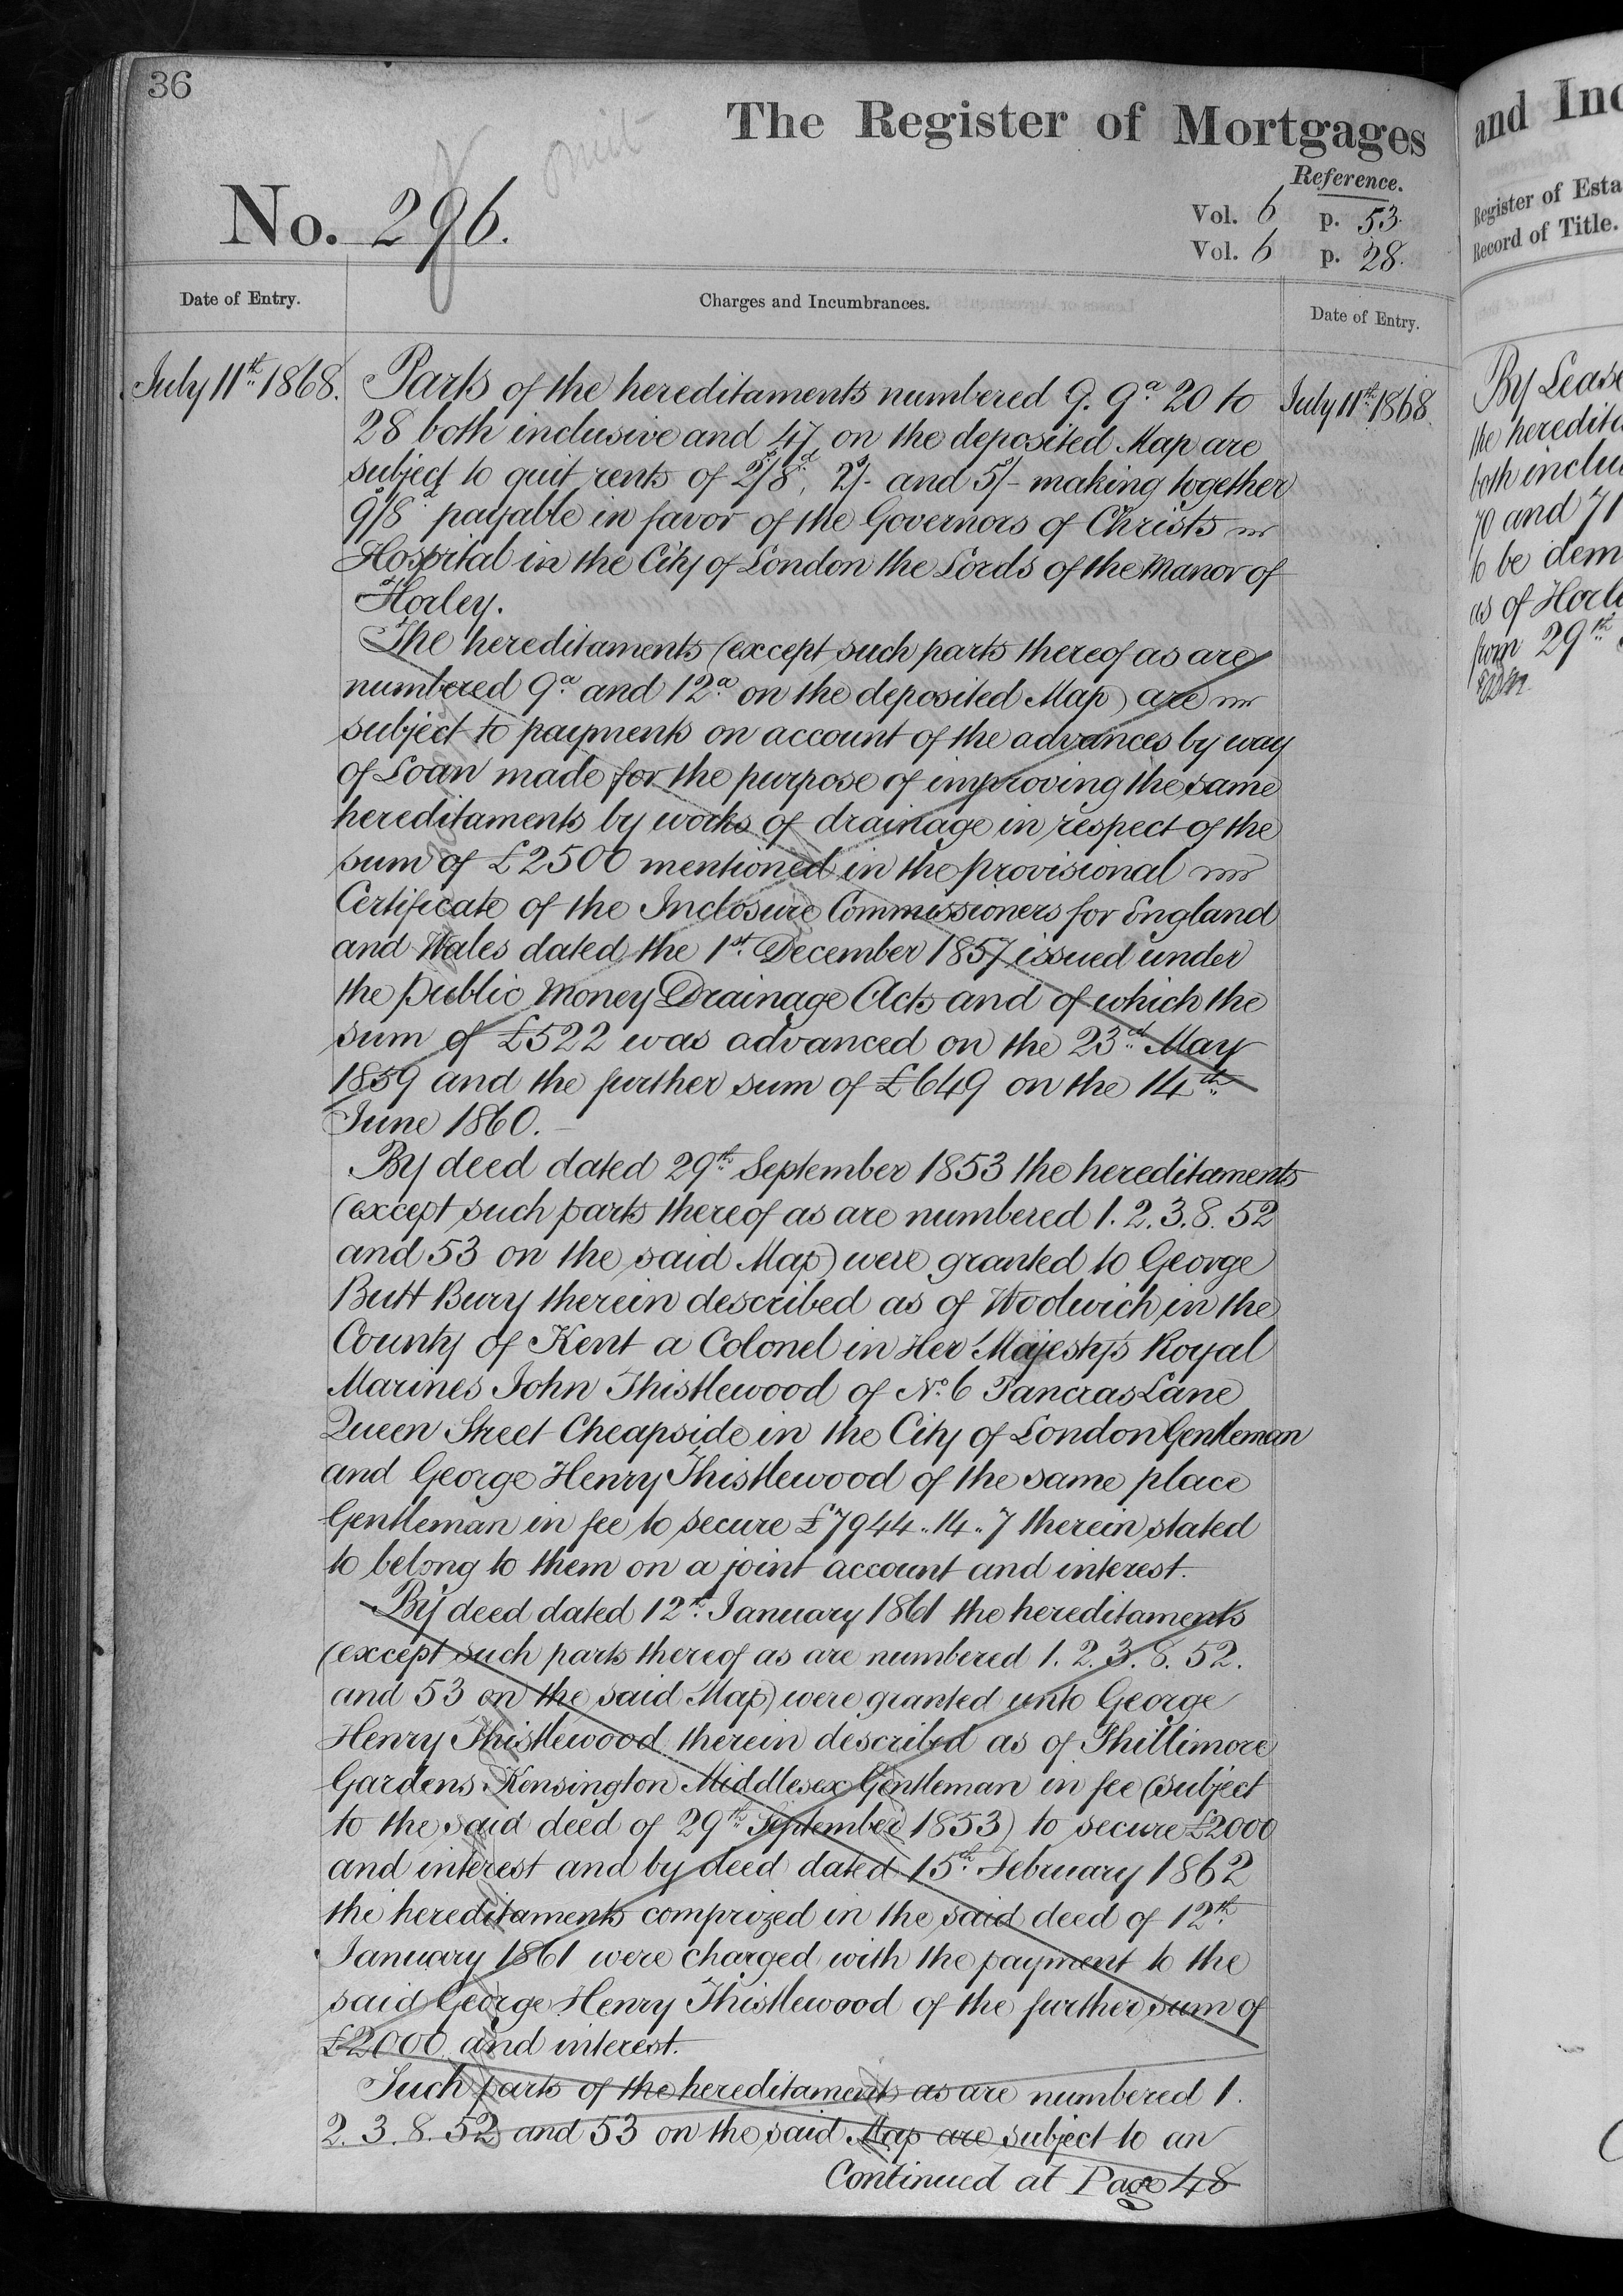 36
The Register of Mortgages
No. 296.
omit
Reference.
Vol. 6 p. 53.
Vol. 6 p. 28.
Date of Entry.
Charges and Incumbrances.
Date of Entry.
July 11th 1868.
Parts of the hereditaments numbered 9. 9a 20 to
28 both inclusive and 47 on the deposited Map are
subject to quit rents of 2s/8d, 2s/- and 5s/- making together
9s/8d payable in favor of the Governors of Christs
Hospital in the City of London the Lords of the Manor of
Horley.
The hereditaments (except such parts thereof as are
numbered 9a and 12a on the deposited Map) are
subject to payments on account of the advances by way
of Loan made for the purpose of improving the same
hereditaments by works of drainage in respect of the
sum of £2500 mentioned in the provisional
Certificate of the Inclosure Commissioners for England
and Wales dated the 1st December 1857 issued under
the public Money Drainage Acts and of which the
sum of £522 was advanced on the 23rd May
1859 and the further sum of £649 on the 14th
June 1860.
By deed dated 29th September 1853 the hereditaments
(except such parts thereof as are numbered 1. 2. 3. 8. 52
and 53 on the said Map) were granted to George
Butt Bury therein described as of Woolwich in the
County of Kent a Colonel in Her Majesty's Royal
Marines John Thistlewood of No. 6 Pancras Lane
Queen Street Cheapside in the City of London Gentleman
and George Henry Thistlewood of the same place
Gentleman in fee to secure £7944.. 14.. 7 therein stated
to belong to them on a joint account and interest.
By deed dated 12th January 1861 the hereditaments
(except such parts thereof as are numbered 1. 2. 3. 8. 52.
and 53 on the said Map) were granted unto George
Henry Thistlewood therein described as of Phillimore
Gardens Kensington Middlesex Gentleman in fee (subject
to the said deed of 29th September 1853) to secure £2000
and interest and by deed dated 15th February 1862
the hereditaments comprized in the said deed of 12th
January 1861 were charged with the payment to the
said George Henry Thistlewood of the further sum of
£2000 and interest.
Such parts of the hereditaments as are numbered 1.
2. 3. 8. 52 and 53 on the said Map are subject to an
Continued at Page 48
July 11th 1868.
and Inc
Register of Esta
Record of Title.
By Lease
the heredita
both inclu
70 and 71
to be dem
as of Horle
from 29th